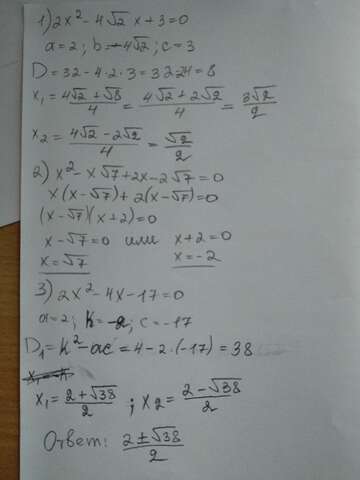 1) 2x² - 4√2 x + 3 = 0
a = 2; b = -4√2; c = 3
D = 32 - 4·2·3 = 32-24 = 8
x₁ = (4√2 + √8)/4 = (4√2 + 2√2)/4 = 3√2/2
x₂ = (4√2 - 2√2)/4 = √2/2
2) x² - x√7 + 2x - 2√7 = 0
x(x - √7) + 2(x - √7) = 0
(x - √7)(x + 2) = 0
x - √7 = 0 или x + 2 = 0
x = √7 x = -2
3) 2x² - 4x - 17 = 0
a = 2; k = -2; c = -17
D₁ = k² - ac = 4 - 2·(-17) = 38
x₁ = (2 + √38)/2 ; x₂ = (2 - √38)/2
Ответ: (2 ± √38)/2